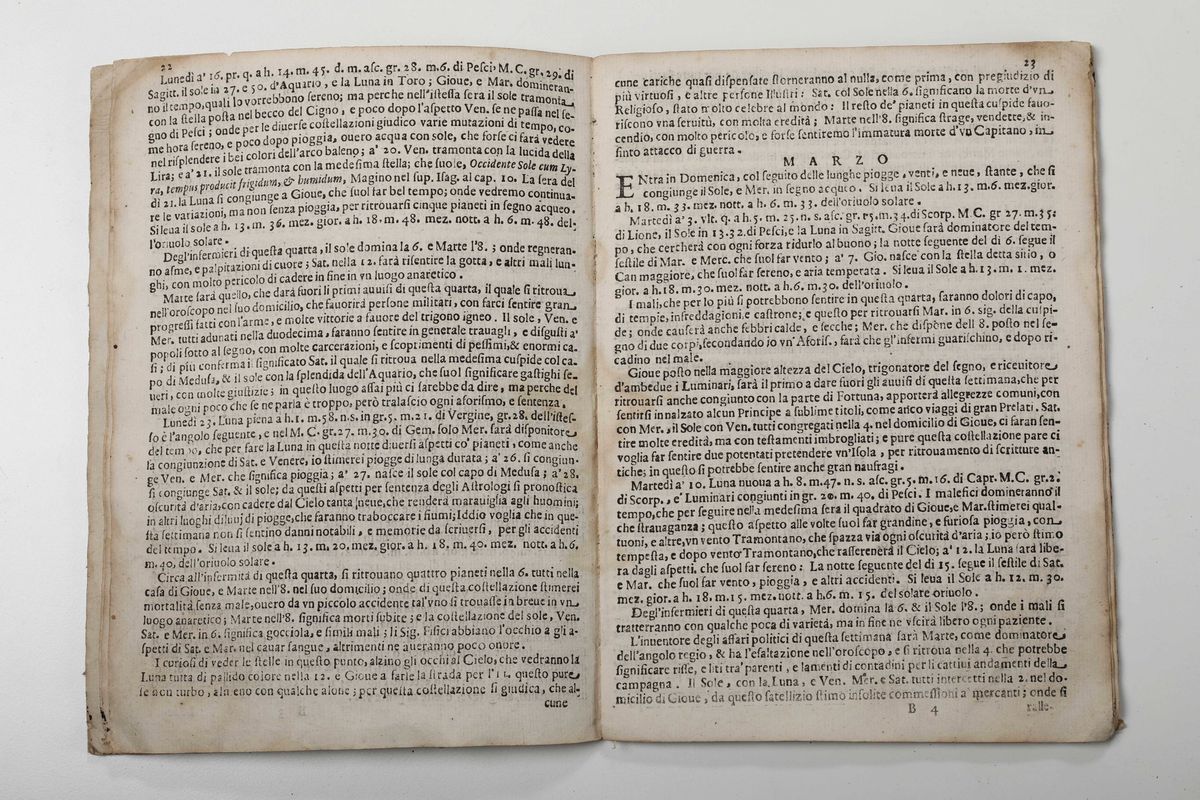 22
Lunedì a' 16. pr. q. a h. 14. m. 45. d. m. asc. gr. 28. m. 6. di Pesci, M. C. gr. 29. di
Sagitt. il sole in 27. e 50. d'Aquario, e la Luna in Toro; Gioue, e Mar. domineran-
no il tempo, quali lo vorrebbono sereno; ma perche nell'istessa sera il sole tramonta
con la stella posta nel becco del Cigno, e poco dopo l'aspetto Ven. se ne passa nel se-
gno di Pesci; onde per le diuerse costellazioni giudico varie mutazioni di tempo, co-
me hora sereno, e poco dopo pioggia, ouero acqua con sole, che forse ci farà vedere
nel risplendere i bei colori dell'arco baleno; a' 20. Ven. tramonta con la lucida della
Lira; e a' 21. il sole tramonta con la medesima stella; che suole, Occidente Sole cum Ly-
ra, tempus producit frigidum, & humidum, Magino nel sup. Isag. al cap. 10. La sera del
di 21. la Luna si congiunge a Gioue, che suol far bel tempo; onde vedremo continua-
re le variazioni, ma non senza pioggia, per ritrouarsi cinque pianeti in segno acqueo.
Si leua il sole a h. 13. m. 36. mez. gior. a h. 18. m. 48. mez. nott. a h. 6. m. 48. del-
l'oriuolo solare.
Degl'infermieri di questa quarta, il sole domina la 6. e Marte l'8.; onde regneran-
no asme, e palpitazioni di cuore; Sat. nella 12. farà risentire la gotta, e altri mali lun-
ghi, con molto pericolo di cadere in fine in vn luogo anaretico.
Marte sarà quello, che darà fuori li primi auuisi di questa quarta, il quale si ritroua
nell'oroscopo nel suo domicilio, che fauorirà persone militari, con farci sentire gran
progressi fatti con l'arme, e molte vittorie a fauore del trigono igneo. Il sole, Ven. e
Mer. tutti adunati nella duodecima, faranno sentire in generale trauagli, e disgusti a'
popoli sotto al segno, con molte carcerazioni, e scoptimenti di pessimi, & enormi ca-
si; di più conferma il significato Sat. il quale si ritroua nella medesima cuspide col ca-
po di Medusa, & il sole con la splendida dell'Aquario, che suol significare gastighi se-
ueri, con molte giustizie; in questo luogo assai più ci sarebbe da dire, ma perche del
male ogni poco che se ne parla è troppo, però tralascio ogni aforismo, e sentenza.
Lunedì 23. Luna piena a h. 1. m. 58. n. s. in gr. 5. m. 21. di Vergine, gr. 28. dell'istes-
so è l'angolo seguente, e nel M. C. gr. 27. m. 30. di Gem. solo Mer. sarà dispositore
del tempo, che per fare la Luna in questa notte diuersi aspetti co' pianeti, come anche
la congiunzione di Sat. e Venere, io stimerei piogge di lunga durata; a' 26. si congiun-
ge Ven. e Mer. che significa pioggia; a' 27. nasce il sole col capo di Medusa; a' 28.
si congiunge Sat. & il sole; da questi aspetti per sentenza degli Astrologi si pronostica
oscurità d'aria, con cadere dal Cielo tanta neue, che renderà marauiglia agli huomini;
in altri luoghi diluuj di piogge, che faranno traboccare i fiumi; Iddio voglia che in que-
sta settimana non si sentino danni notabili, e memorie da scriuersi, per gli accidenti
del tempo. Si leua il sole a h. 13. m. 20. mez. gior. a h. 18. m. 40. mez. nott. a h. 6.
m. 40. dell'oriuolo solare.
Circa all'infermità di questa quarta, si ritrouano quattro pianeti nella 6. tutti nella
casa di Gioue, e Marte nell'8. nel suo domicilio; onde di questa costellazione stimerei
mortalità senza male, ouero da vn piccolo accidente tal'vno si trouasse in breue in vn
luogo anaretico; Marte nell'8. significa morti subite; e la costellazione del sole, Ven.
Sat. e Mer. in 6. significa gocciola, e simili mali; li Sig. Fisici abbiano l'occhio a gli a-
spetti di Sat. e Mar. nel cauar sangue, altrimenti ne aueranno poco onore.
I curiosi di veder le stelle in questo punto, alzino gli occhi al Cielo, che vedranno la
Luna tutta di pallido colore nella 12. e Gioue a farle la strada per l'11. questo pure
se non turbo, almeno con qualche alone; per questa costellazione si giudica, che al-
cune
23
cune cariche quasi dispensate storneranno al nulla, come prima, con pregiudizio di
più virtuosi, e altre persone Illustri: Sat. col Sole nella 6. significano la morte d'vn
Religioso, stato molto celebre al mondo: Il resto de' pianeti in questa cuspide fauo-
riscono vna seruitù, con molta eredità; Marte nell'8. significa strage, vendette, & in-
cendio, con molto pericolo, e forse sentiremo l'immatura morte d'vn Capitano, in
finto attacco di guerra.
MARZO
ENtra in Domenica, col seguito delle lunghe piogge, venti, e neue, stante, che si
congiunge il Sole, e Mer. in segno acqueo. Si leua il Sole a h. 13. m. 6. mez. gior.
a h. 18. m. 33. mez. nott. a h. 6. m. 33. dell'oriuolo solare.
Martedì a' 3. vlt. q. a h. 5. m. 25. n. s. asc. gr. 15. m. 34. di Scorp. M. C. gr 27. m. 35.
di Lione, il Sole in 13. 32. di Pesci, e la Luna in Sagitt. Gioue sarà dominatore del tem-
po, che cercherà con ogni forza ridurlo al buono; la notte seguente del di 6. segue il
sestile di Mar. e Merc. che suol far vento; a' 7. Gio. nasce con la stella detta sitio, o
Can maggiore, che suol far sereno, e aria temperata. Si leua il Sole a h. 13. m. 1. mez.
gior. a h. 18. m. 30. mez. nott. a h. 6. m. 30. dell'oriuolo.
I mali, che per lo più si potrebbono sentire in questa quarta, saranno dolori di capo,
di tempie, infreddagioni, e castrone; e questo per ritrouarsi Mar. in 6. sig. della cuspi-
de; onde causerà anche febbri calde, e secche; Mer. che dispone dell'8. posto nel se-
gno di due corpi, secondando io vn' Aforis., farà che gl'infermi guarischino, e dopo ri-
cadino nel male.
Gioue posto nella maggiore altezza del Cielo, trigonatore del segno, e riceuitore
d'ambedue i Luminari, sarà il primo a dare fuori gli auuisi di questa settimana, che per
ritrouarsi anche congiunto con la parte di Fortuna, apporterà allegrezze comuni, con
sentirsi innalzato alcun Principe a sublime titoli, come anco viaggi di gran Prelati. Sat.
con Mer., il Sole con Ven. tutti congregati nella 4. nel domicilio di Gioue, ci faran sen-
tire molte eredità, ma con testamenti imbrogliati; e pure questa costellazione pare ci
voglia far sentire due potentati pretendere vn'Isola, per ritrouamento di scritture an-
tiche; in questo si potrebbe sentire anche gran naufragi.
Martedì a' 10. Luna nuoua a h. 8. m. 47. n. s. asc. gr. 5. m. 16. di Capr. M. C. gr. 2.
di Scorp., e' Luminari congiunti in gr. 20. m. 40. di Pesci. I malefici domineranno il
tempo, che per seguire nella medesima sera il quadrato di Gioue, e Mar. stimerei qual-
che strauaganza; questo aspetto alle volte suol far grandine, e furiosa pioggia, con
tuoni, e altre, vn vento Tramontano, che spazza via ogni oscurità d'aria; io però stimo
tempesta, e dopo vento Tramontano, che rasserenerà il Cielo; a' 12. la Luna sarà libe-
ra dagli aspetti, che suol far sereno: La notte seguente del di 15. segue il sestile di Sat.
e Mar. che suol far vento, pioggia, e altri accidenti. Si leua il Sole a h. 12. m. 30.
mez. gior. a h. 18. m. 15. mez. nott. a h. 6. m. 15. del solare oriuolo.
Degl'infermieri di questa quarta, Mer. domina la 6. & il Sole l'8.; onde i mali si
tratterranno con qualche poca di varietà, ma in fine ne vscirà libero ogni paziente.
L'inuentore degli affari politici di questa settimana sarà Marte, come dominatore
dell'angolo regio, & ha l'esaltazione nell'oroscopo, e si ritroua nella 4. che potrebbe
significare risse, e liti tra' parenti, e lamenti di contadini per li cattiui andamenti della
campagna. Il Sole, con la Luna, e Ven. Mer. e Sat. tutti intercetti nella 2. nel do-
micilio di Gioue, da questo satellizio stimo insolite commessioni a' mercanti; onde si
B 4
ralle-